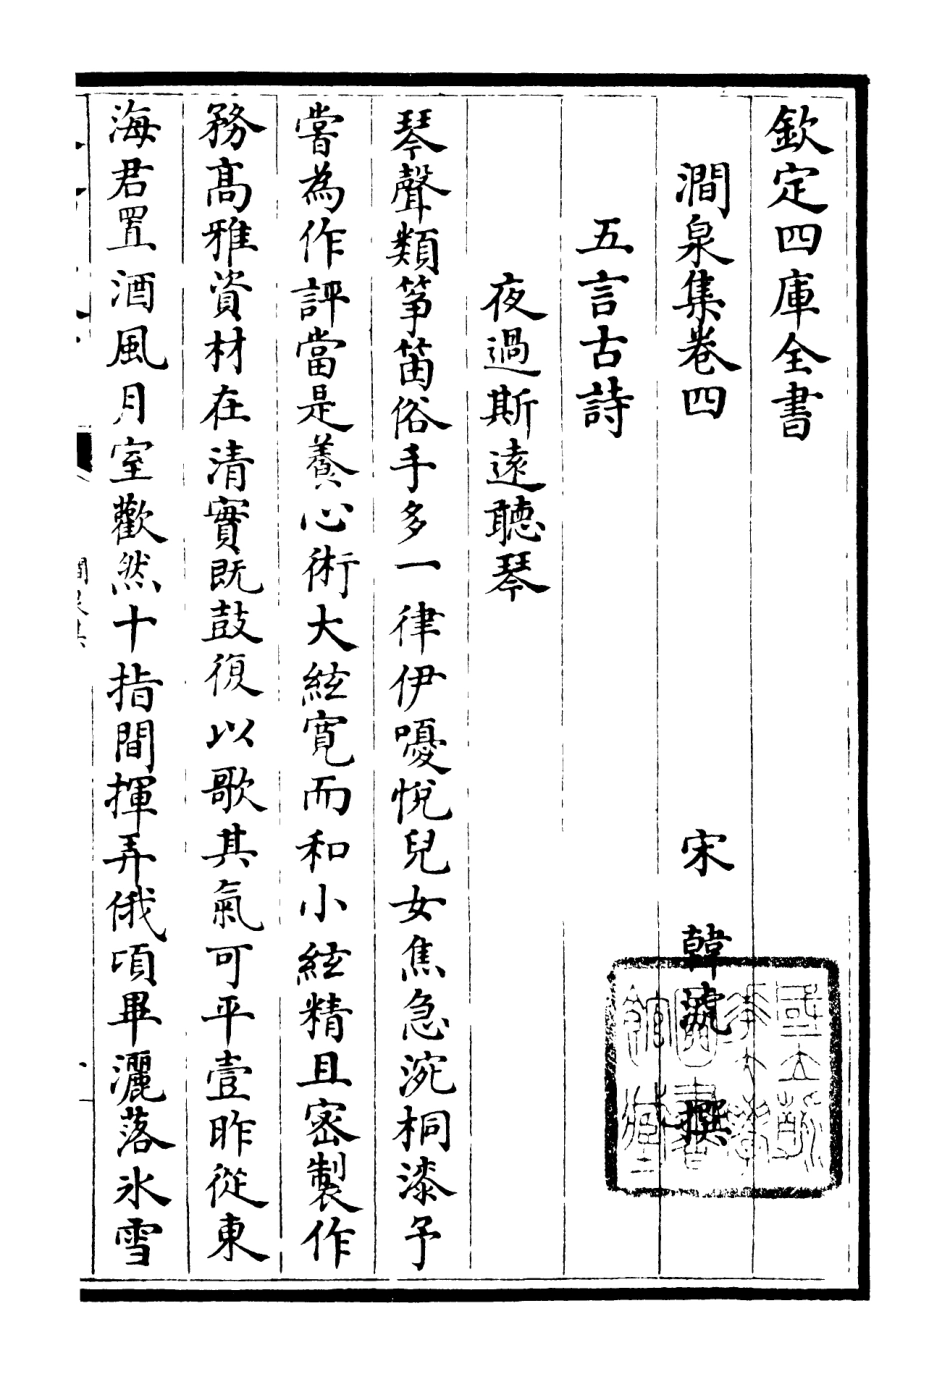 欽定四庫全書
澗泉集卷四
宋 韓淲 撰
五言古詩
夜過斯遠聽琴
琴聲類筝笛俗手多一律伊嚘悅兒女焦急涴桐漆予
嘗為作評當是養心術大絃寛而和小絃精且密製作
務高雅資材在清實既鼓復以歌其氣可平壹昨從東
海君置酒風月室歡然十指間揮弄俄頃畢灑落氷雪